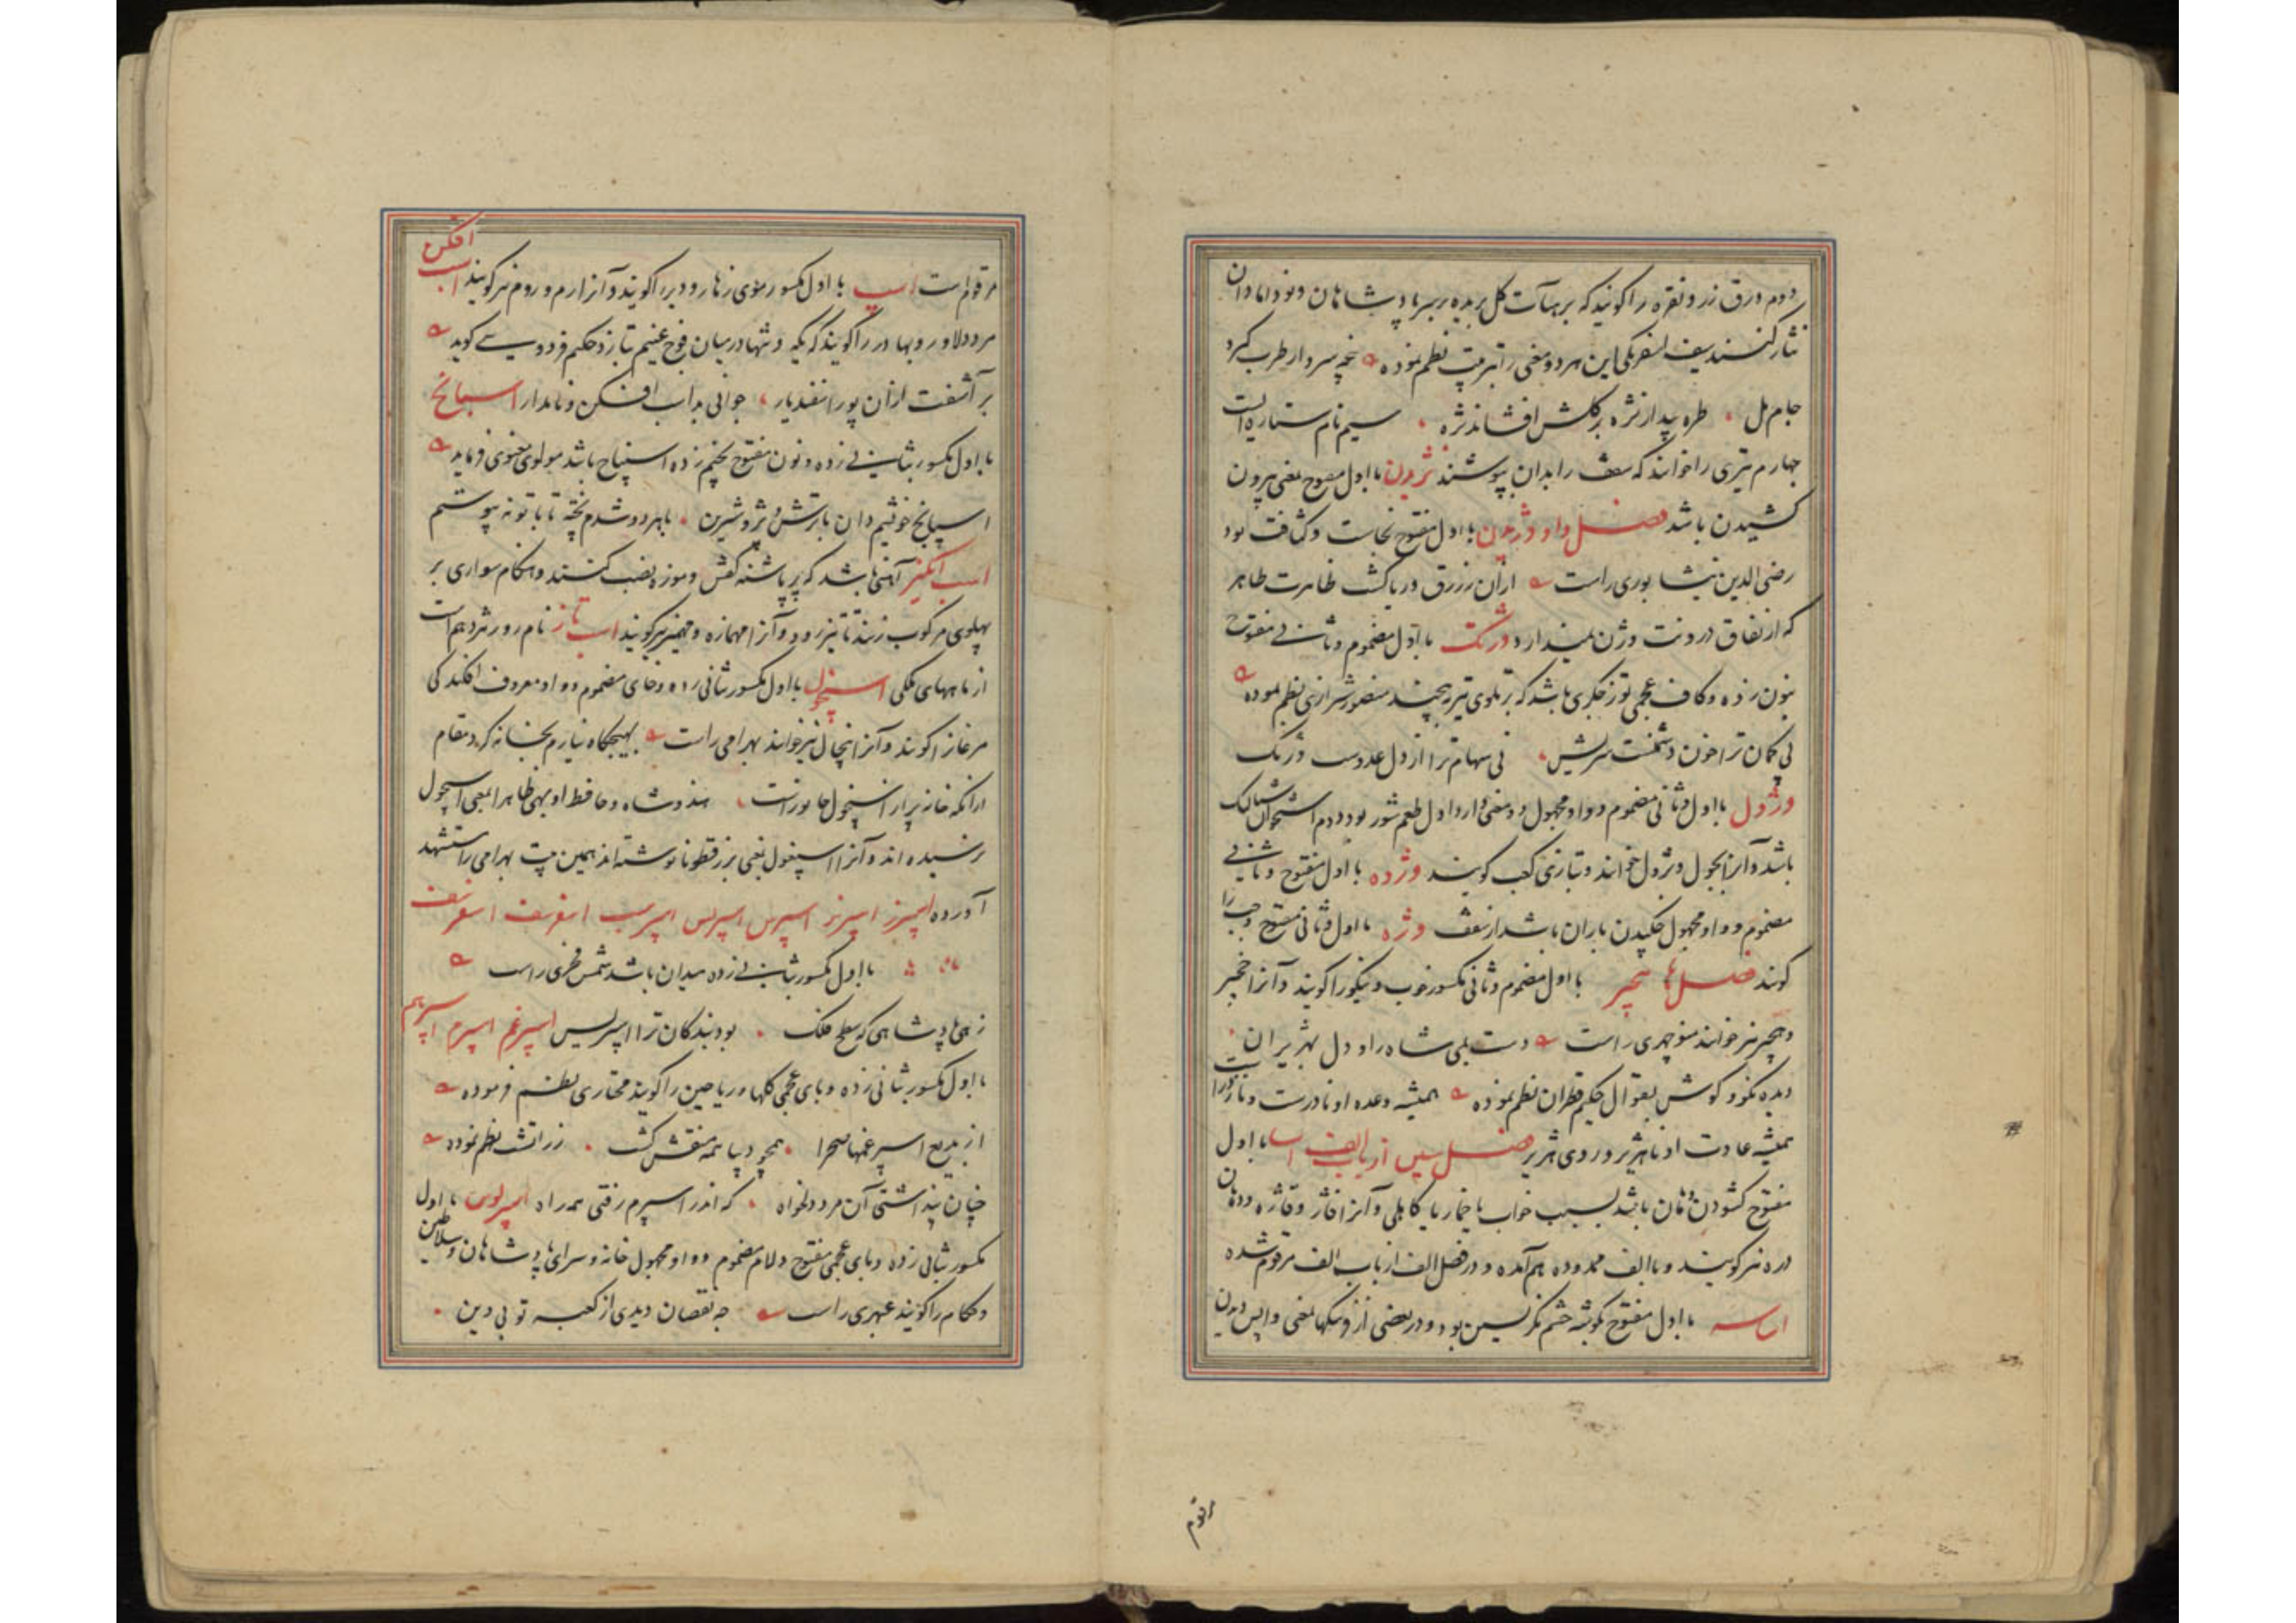 دوم ورق زر و نقره را گویند که بر هیأت گل بریده بر سر پادشاهان و نو دامادان
نثار کنند سیف اسفرنگی این هر دو معنی را بترتیب نظم نموده غنچه سر وار طرب گیرد
جام مل طره پیدار نژه بر گلش افشاند نژه سیم نام ستاره ایست
چهارم تیری را خوانند که سقف را بدان بپوشند نژیدن با اول مفتوح بمعنی بیرون
کشیدن باشد فصل واو وژن با اول مفتوح نجاست و کثافت بود
رضی الدین نیشابوری راست از آن زرق دریا کشت ظاهرت طاهر
که از نفاق درونت وژن نمیدارد وژنگ با اول مضموم و ثانی مفتوح
بنون زده و کاف عجمی
نی کمان ترا خون دشمنت نی سهام ترا از دل عدوست وژنگ
وژول با اول و ثانی مضموم و واو مجهول دو معنی دارد اول طعم شور بود دوم استخوان شتالنگ
باشد و آنرا بجول و بژول خوانند و بتازی کعب گویند وژده با اول مفتوح و ثانی
مضموم و واو مجهول چکیدن باران باشد از سقف وژه با اول و ثانی مفتوح وجب را
گویند فصل ها هجیر با اول مضموم و ثانی مکسور خوب و نیکو را گویند و آنرا خجیر
و هچیر نیز خوانند منوچهری راست دست بمی شاه را و دل بهژیران
دیده نکو و گوش بقوال حکیم قطران نظم نموده همیشه وعده او نادرست و نازیباست
همیشه عادت او ناهژیر و روی هژیر فصل سین از باب الف اسا با اول
مفتوح گشودن دهان باشد بسبب خواب یا خمار یا کاهلی و آنرا فاژ و فاژه و دهان
دره نیز گویند و با الف ممدوده هم آمده و در فصل الف از باب الف مرقوم شده
با اول مفتوح بگوشه چشم نگریستن بود و در بعضی از فرهنگها بمعنی واپس دیدن
مرقوم
مرقوم است اسب با اول مکسور موی زهار و دبر را گویند و آنرا رم و روم نیز گویند اسب افکن
مرد دلاور و بهادر را گویند که یکه و تنها در میان فوج غنیم تازد حکیم فردوسی گوید
بر آشفت از آن پور اسفندیار جوانی بد اسب افکن و نامدار اسپانخ
با اول مکسور بثانی زده و نون مفتوح بخیم زده اسپناخ باشد مولوی معنوی فرماید
اسپانخ خوشیم دان با ترش و تر و شیرین با هر دو شدم پخته تا با تو نه پیوستم
اسب انگیز آهنی باشد که بر پاشنه کفش و موزه نصب کنند و هنگام سواری بر
پهلوی مرکوب زنند تا تیز رود و آنرا مهمازه و مهمیز نیز گویند اسب تاز نام روز هژدهم است
از ماههای ملکی اسپیخول با اول مکسور بثانی زده و خای مضموم و واو معروف افکندگی
مرغان را گویند و آنرا پیخال نیز خوانند بهرامی راست بهیچگاه نیارم بخانه کرد مقام
از آنکه خانه پر از اسپیخول جانور است هندوشاه و حافظ اوبهی ظاهرا بمعنی اسپیخول
نرسیده اند و آنرا اسپغول یعنی بزر قطونا نوشته اند همین بیت بهرامی را مستشهد
آورده اسپریز اسپرز اسپرس اسپریس اسپرسب اسفرسف
با اول مکسور بثانی زده میدان باشد شمس فخری راست
زهی پادشاهی که سطح فلک بود بندگان ترا اسپریس اسپرغم اسپرم اسپرهم
با اول مکسور بثانی زده و بای عجمی گلها و ریاحین را گویند مختاری نظم فرموده
از بدیع اسپرغمها صحرا همچو دیبا همه منقش گشت زراتشت نظم نموده
چنان پنداشتی آن مرد دلخواه که اندر اسپرم رفتی همه راه اسپرلوس با اول
مکسور بثانی زده و بای عجمی مفتوح و لام مضموم و واو مجهول خانه و سرای پادشاهان و سلاطین
و حکام را گویند عبهری راست چه نقصان دیدی از کعبه تو بی دین